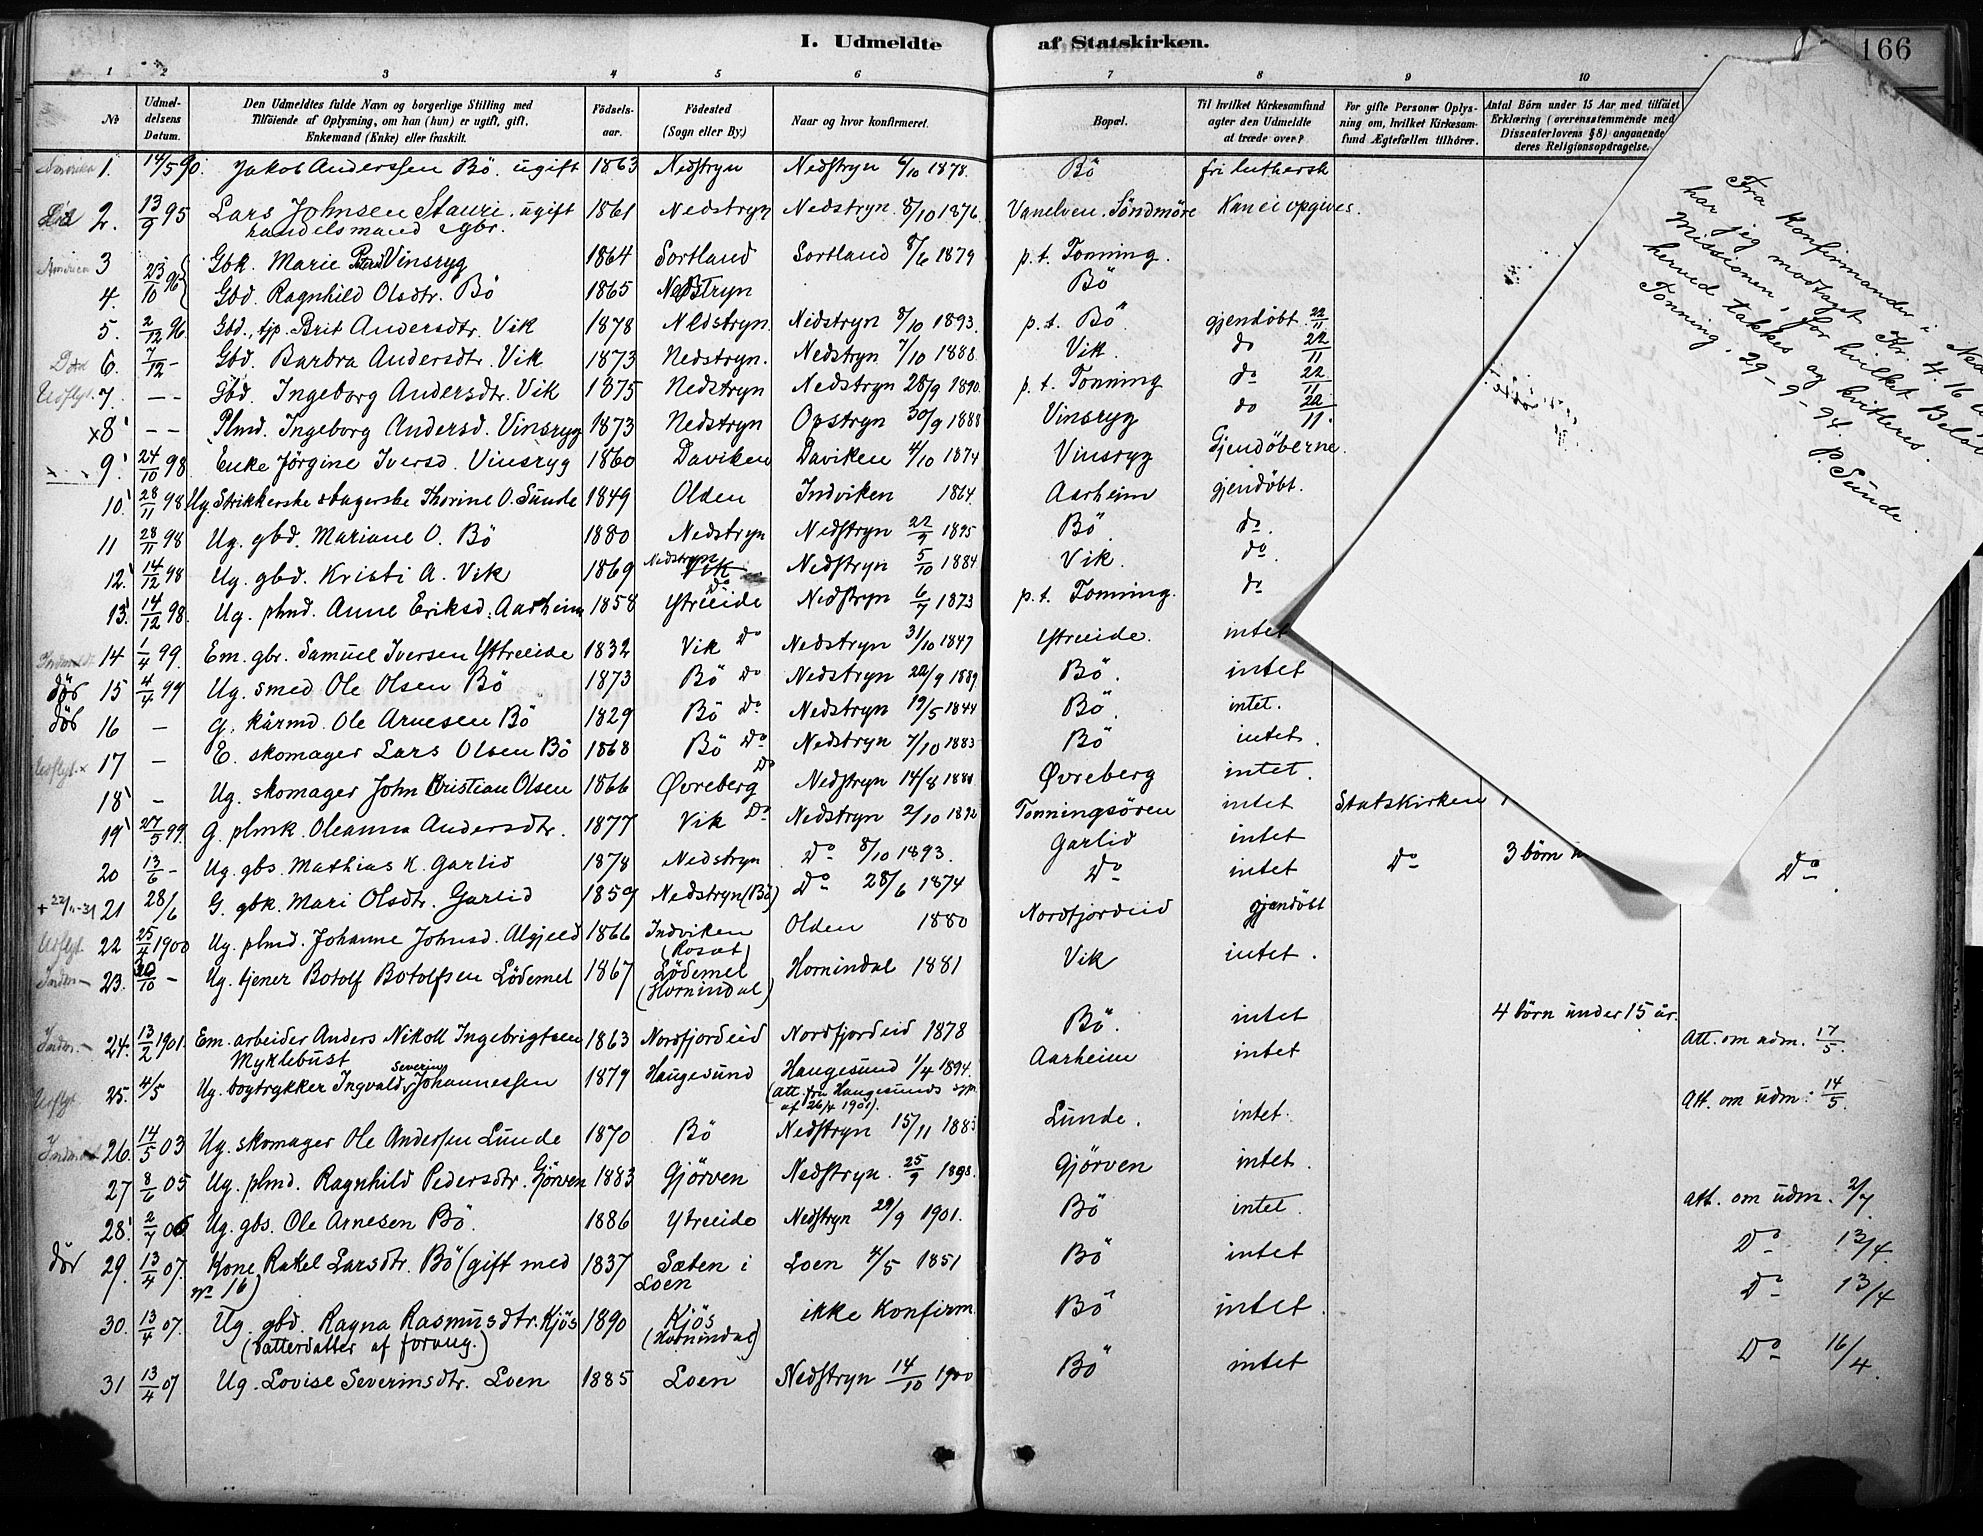 I. Udmeldte af Statskirken. 166
1 2 3 4 5 6 7 8 9 10
No
Udmeldelsens Datum.
Den Udmeldtes fulde Navn og borgerlige Stilling med Tilføiende af Oplysning, om han (hun) er ugift, gift, Enkemand (Enke) eller fraskilt.
Fødselsaar.
Fødested (Sogn eller By.)
Naar og hvor konfirmeret.
Bopæl.
Til hvilket Kirkesamfund agter den Udmeldte at træde over?
For gifte Personer Oplysning om, hvilket Kirkesamfund Ægtefællen tilhörer.
Antal Börn under 15 Aar med tilföiet Erklæring (overensstemmende med Dissenterlovens § 8) angaaende deres Religionsopdragelse.
Amerika 1. 14/5 90. Jakob Anderssen Bö. ugift 1863 Nedstryn Nedstryn 6/10 1878. Bö fri luthersk
2. 13/9 95 Lars Johnsen Stauri. ugift 1861 Nedstryn Nedstryn 8/10 1876. Vanelven. Söndmöre Kan ei opgives.
handelsmand gbr.
Amerika 3 23/10 96 Gbk. Marie Vinsryg 1864 Sortland Sortland 8/6 1879 p.t. Tonning.
4. Gbd. Ragnhild Olsdtr. Bö 1865 Nedstryn Bö
5. 2/12 96. Gbd., tjp. Brit Andersdtr. Vik 1878 Nedstryn. Nedstryn 8/10 1893. p.t. Bö. gjendöbt 22/11
Död 6. 7/12 - Gbd. Barbra Andersdtr. Vik 1873 Nedstryn. Nedstryn 7/10 1888. Vik. do 22/11
Udflyt. 7. - - Gbd. Ingeborg Andersdtr. Vik 1875 Nedstryn Nedstryn 28/9 1890. p.t. Tonning do 22/11
x8 - - Plmd. Ingeborg Andersd. Vinsryg 1873 Nedstryn Opstryn 30/9 1888 Vinsryg do 22/11.
9. 24/10 98 Enke Jörgine Iversd. Vinsryg 1860 Daviken Daviken 4/10 1874 Vinsryg Gjendöberne.
10. 28/11 98 Ug. Strikkerske & bagerske Thorine O. Sunde 1849 Olden Indviken 1864. Aarheim gjendöbt.
11 28/11 98 Ug. gbd. Mariane O. Bö 1880 Nedstryn Nedstryn 22/9 1895 Bö. do.
12. 14/12 98 Ug. gbd. Kristi A. Vik 1869 Nedstryn Vik Nedstryn 5/10 1884 Vik. do
13. 14/12 98. Ug. plmd. Anne Eriksd. Aarheim 1858 Ytreeide do Nedstryn 6/7 1873 p.t. Tonning. do
Indmeldt 14 1/4 99. Em. gbr. Samuel Iversen Ytreeide 1832 Vik do Nedstryn 31/10 1847 Ytreeide. intet
död 15 4/4 99 Ug. smed Ole Olsen Bö 1873 Bö do Nedstryn 22/9 1889 Bö. intet
död 16 - G. kårmd. Ole Arnesen Bö 1829 Bö Do Nedstryn 19/5 1844 Bö. intet.
Udflyt. x 17 - E. skomager Lars Olsen Bö 1868 Bö Do Nedstryn 7/10 1883 Bö intet.
18 - Ug. skomager John Kristian Olsen 1866 Øvreberg Do Nedstryn 14/8 1881 Øvreberg intet.
19 27/5 99 G. plmk. Oleanna Andersdtr. 1877 Vik Do Nedstryn 2/10 1892 Tonningsören intet Statskirken
20 13/6 - Ug. gbs. Mathias K. Garlid 1878 Nedstryn Do 8/10 1893. Garlid intet
21 28/6 G. gbk. Mari Olsdtr. Garlid 1859 Nedstryn (Bö) Do 28/6 1874 Do intet Do 3 börn Do.
Udflyt. 22 25/4 1900 Ug. plmd. Johanne Johnsd. 1866 Indviken Olden 1880 Nordfjordeid gjendöbt
Indm - 23. 30/10 - Ug. tjener Botolf Botolfsen Lödemel 1867 Lödemel (Hornindal) Hornindal 1881 Vik intet.
Indm. - 24. 13/2 1901. Em. arbeider Anders Nikoll Ingebrigtsen 1863 Nordfjordeid Nordfjordeid 1878 Bö. intet 4 börn under 15 år.
Myklebust
Att. om udm. 17/5.
Udflyt. 25. 4/5 Ug. bogtrykker Ingvald Severin Johannessen 1879 Haugesund Haugesund 1/4 1894. Aarheim intet
(Att. fra Haugesunds
af 26/4 1901).
Att. om udm: 14/5.
Indmeldt 26. 14/5 03 Ug. skomager Ole Andersen Lunde 1870 Bö Nedstryn 15/11 1883 Lunde. intet.
27 8/6 05 Ug. plmd. Ragnhild Pedersdtr. Gjörven 1883 Gjörven Nedstryn. 25/9 1898. Gjörven intet.
28. 2/7 06 Ug. gbs. Ole Arnesen Bö. 1886 Ytreeide Nedstryn 29/9 1901. Bö intet. att. om udm. 2/7.
död 29. 13/4 07. Kone Rakel Larsdtr. Bö (gift med 1837 Sæten i Loen Loen 4/5 1851 Bö intet Do 13/4.
no 16)
30. 13/4 07. Ug. gbd. Ragna Rasmusdtr. Kjös 1890 Kjös (Hornindal) ikke Konfirm. Bö intet. Do 13/4
(datterdatter af forrug.)
31 13/4 07 Ug. Lovise Severinsdtr. Loen 1885 Loen Nedstryn 14/10 1900 Bö intet Do 16/4.
Fra Konfirmander i
har jeg modtaget Kr. 4.16
Missionen, for hvilket
herved takkes og kvitteres.
Tonning. 29-9-94. P. Sunde.